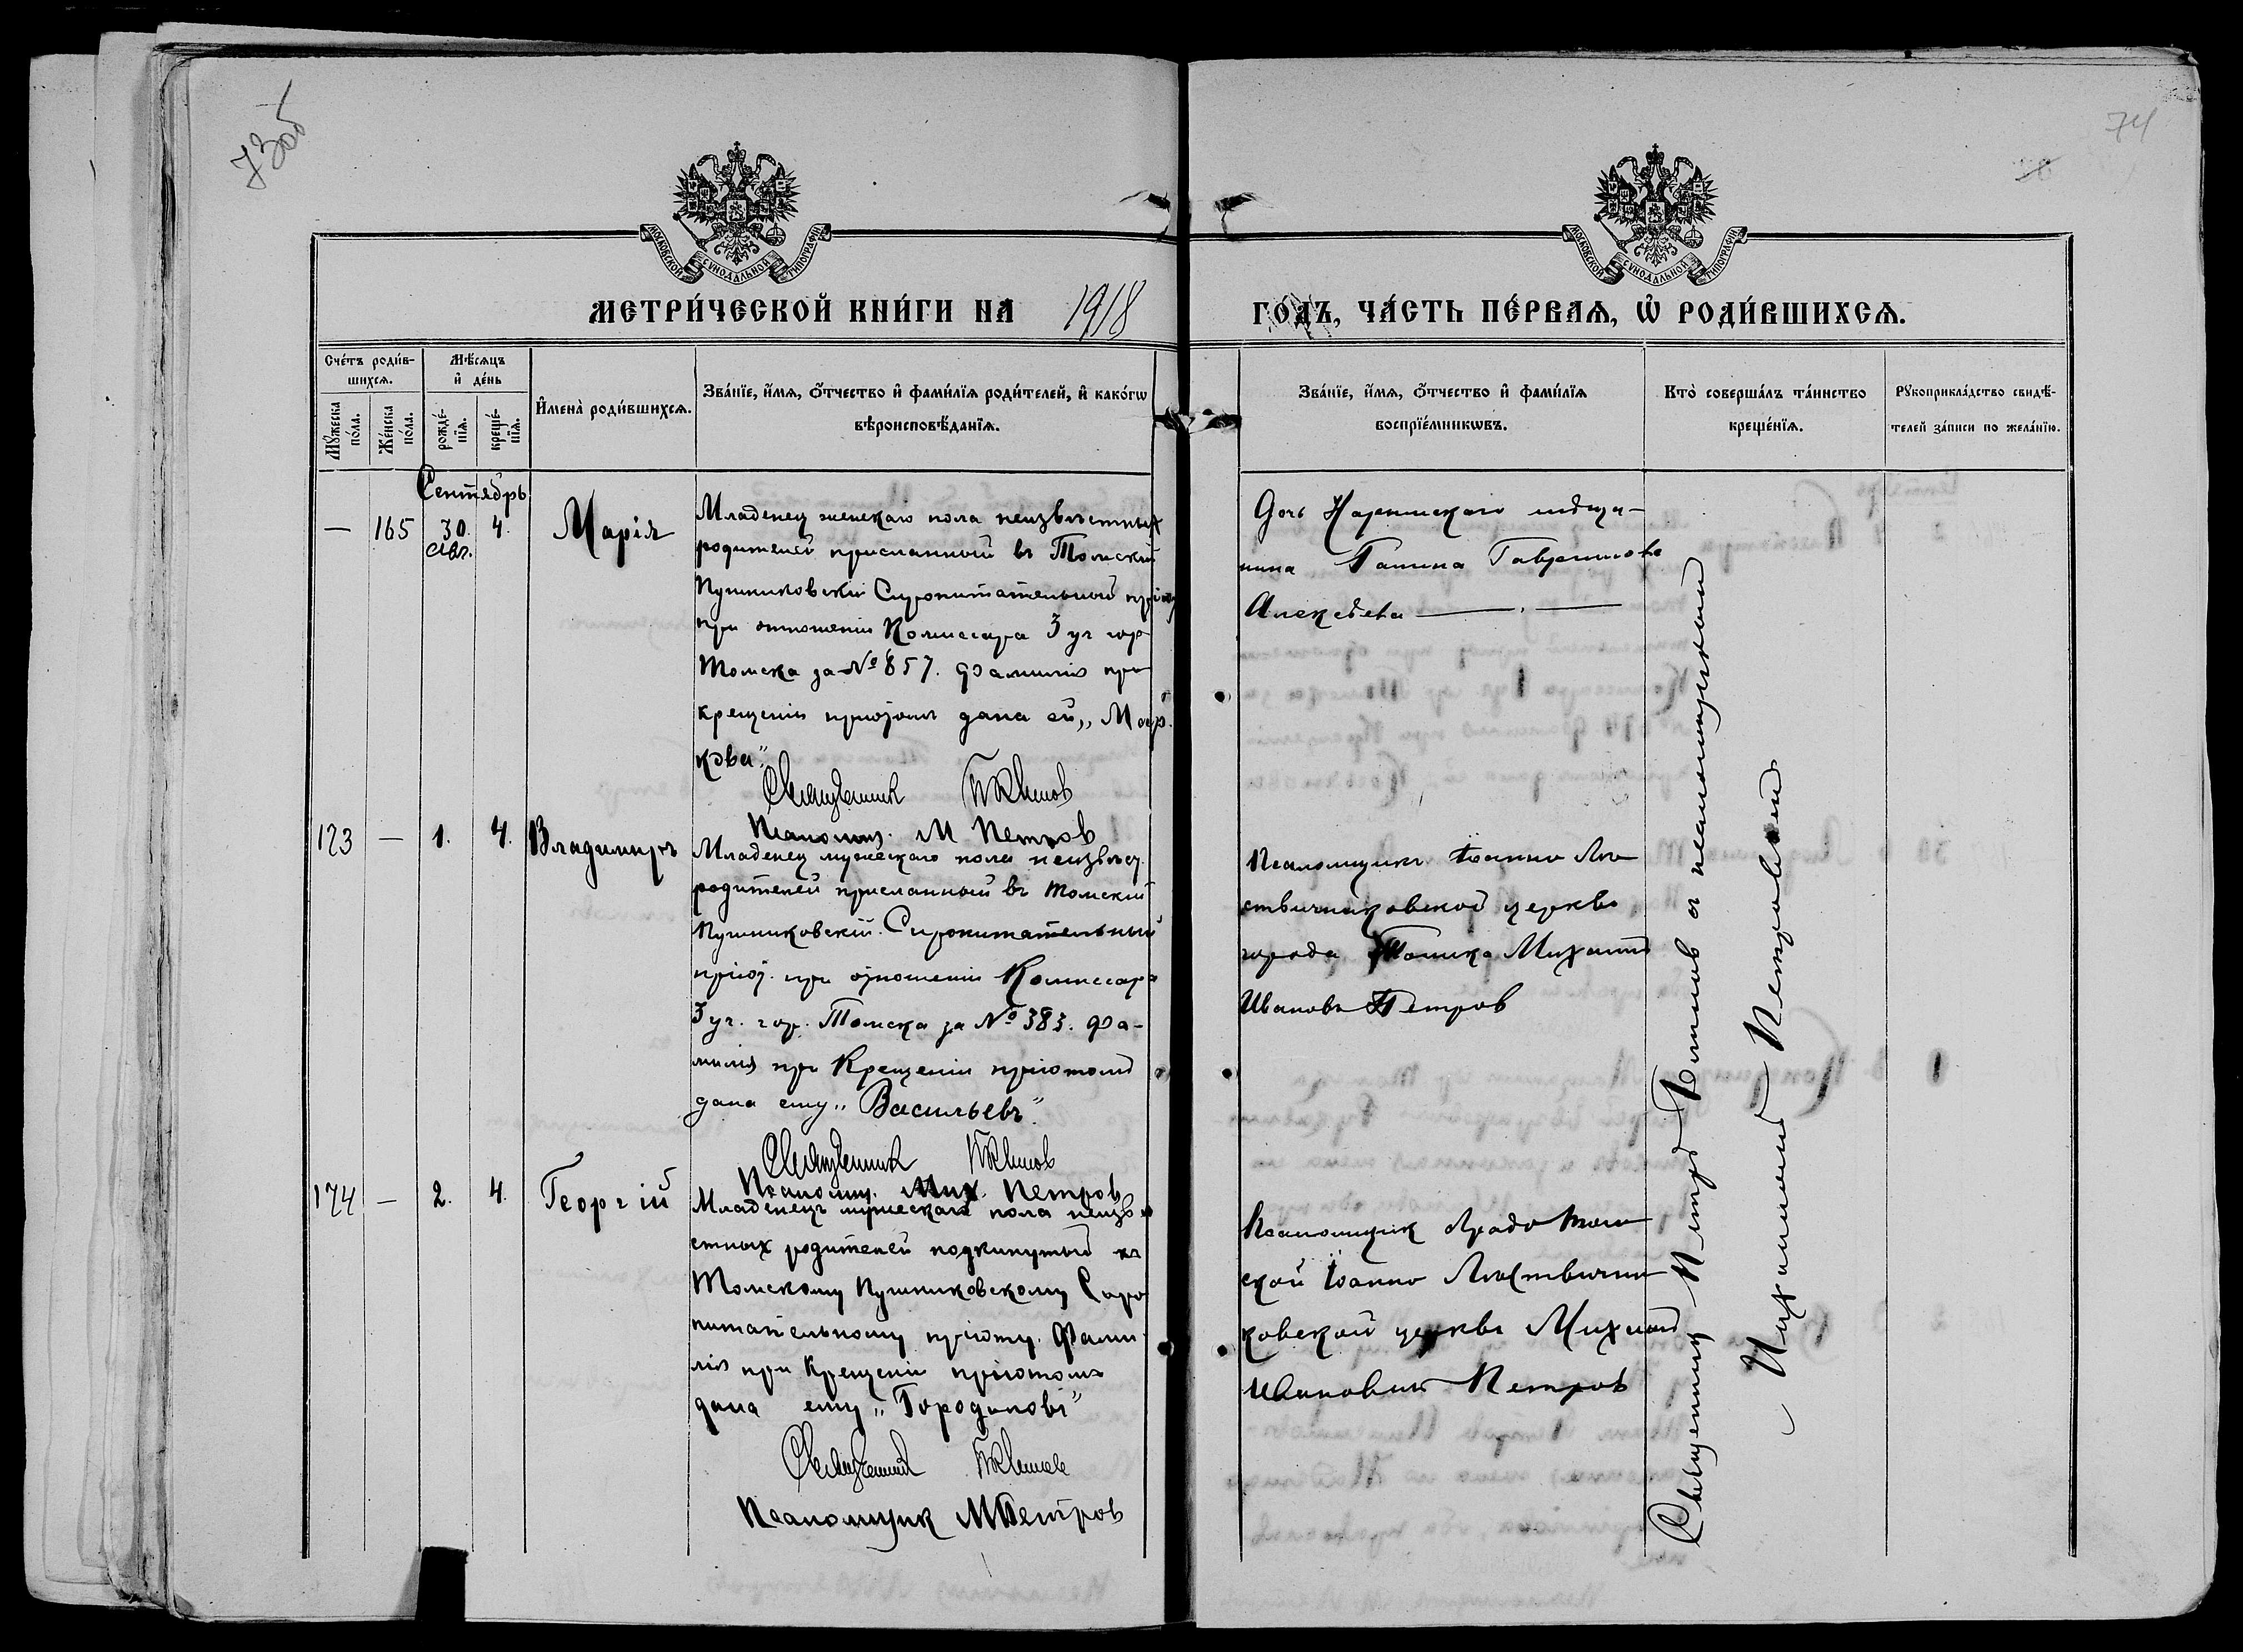 73об
74
МОСКОВСКОЙ СѴНОДАЛЬНОЙ ТИПОГРАФІИ
МОСКОВСКОЙ СѴНОДАЛЬНОЙ ТИПОГРАФІИ
МЕТРИ́ЧЕСКОЙ КНИ́ГИ НА 1918
ГО́ДЪ, ЧА́СТЬ ПЕ́РВАѦ, Ѡ҆ РОДИ́ВШИХСѦ.
Сче́тъ роди́в-
шихсѧ.
Мꙋ́жеска
по́ла.
Же́нска
по́ла.
Мѣ́сѧцъ
и҆ де́нь
рожде́-
нїѧ.
креще́-
нїѧ.
И҆мена̀ роди́вшихсѧ.
Зва́нїе, и҆́мѧ, ѻ҆́тчество и҆ фами́лїѧ роди́телей, и҆ како́гѡ
вѣроисповѣ́данїѧ.
Зва́нїе, и҆́мѧ, ѻ҆́тчество и҆ фами́лїѧ
воспрїе́мникѡвъ.
Кто̀ соверша́лъ та́инство
креще́нїѧ.
Рꙋкоприкла́дство свидѣ́-
телей за́писи по жела́нїю.
Сентябрь
— 165 30. 4. Марія
Авг.
Младенец женскаго пола неизвѣстных
родителей присланный въ Томскій
Пушниковскій Сиропитательный пріют
при отношеніи Комиссара 3 уч гор
Томска за № 857. Фамилія при
крещеніи пріютомъ дана ей „Мар
кова"
Священник П Климов
Псаломщ. М Петров
Дочь Нарымскаго мѣща-
нина Галина Гавриилова
Алексѣева
123 — 1. 4. Владимиръ
Младенец мужескаго пола неизвѣст.
родителей присланный въ Томскій
Пушниковскій Сиропитательный
пріют. при отношеніи Комиссара
3 уч. гор. Томска за № 383. Фа-
милія при Крещеніи пріютомъ
дана ему „Васильевъ"
Священник П Климов
Псаломщ. Мих. Петров
Псаломщикъ Іоанно Лѣ
ствичниковской церкви
города Томска Михаилъ
Ивановъ Петров
174 — 2. 4. Георгій
Младенецъ мужескаго пола неизвѣ
стных родителей подкинутый къ
Томскому Пушниковскому Сиро
питательному пріюту. Фами
лія при Крещеніи пріютомъ
дана ему „Городиловъ"
Священник П Климов
Псаломщик М Петров
Псаломщик Градо Том
ской Іоанно Лѣствични
ковской церкви Михаил
Ивановичъ Петров
Священникъ Петръ Климов с псаломщиком
Михаиломъ Петровымъ